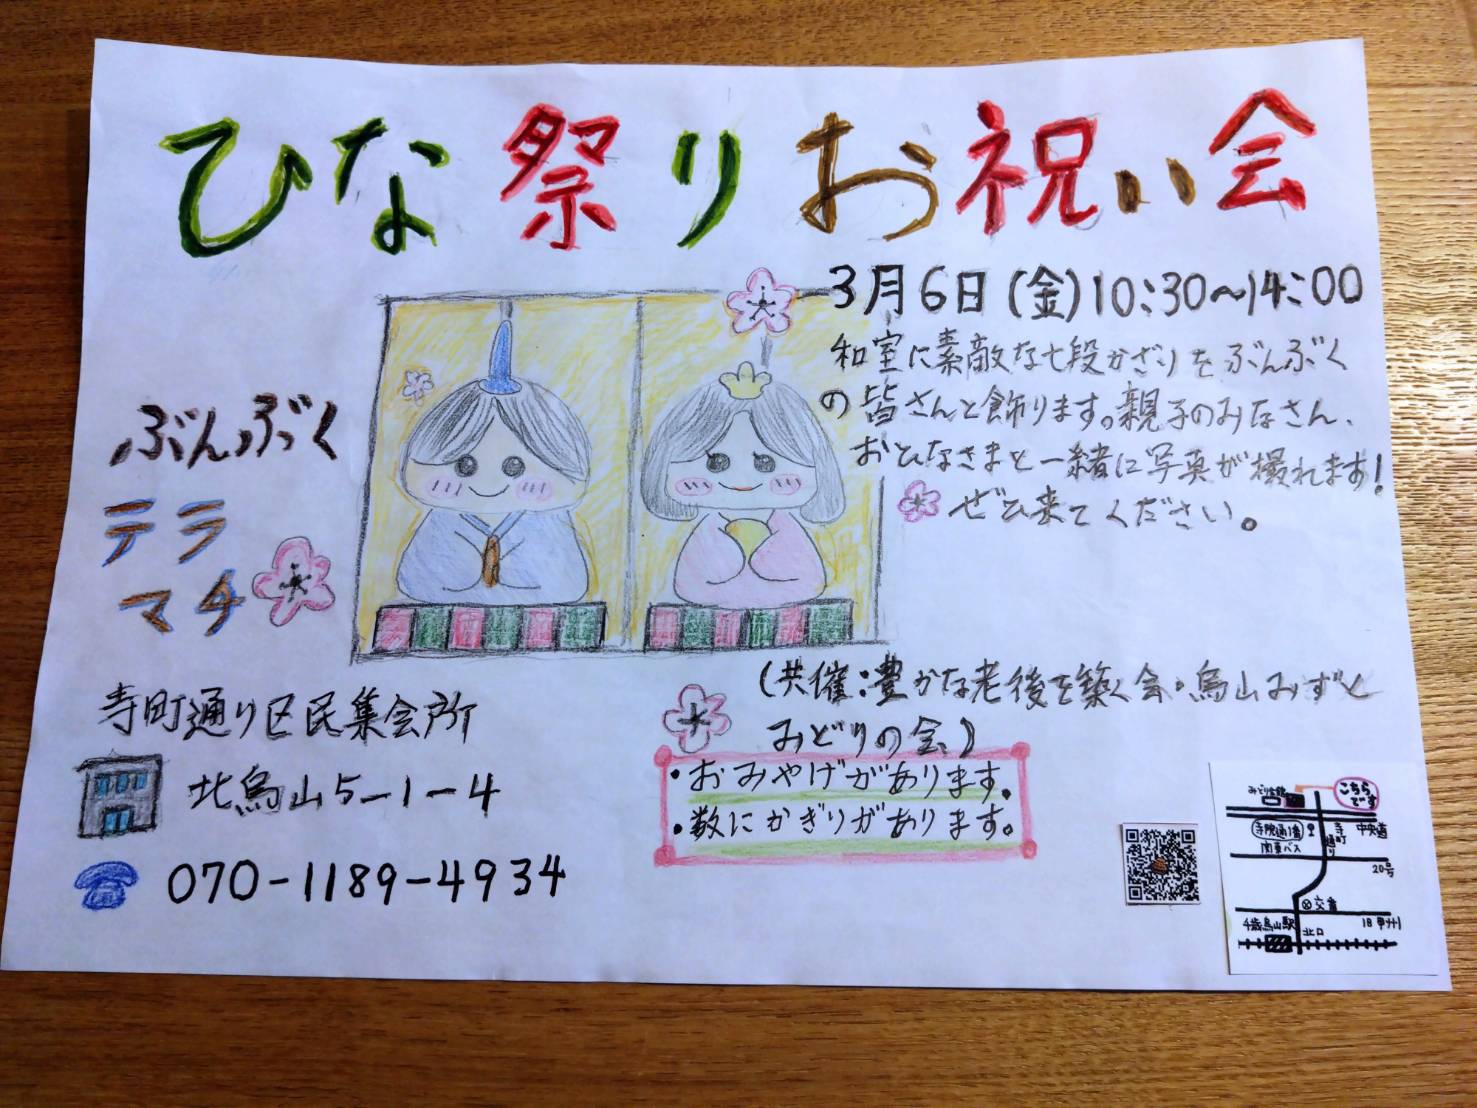 ひな祭りお祝い会
3月6日(金)10:30〜14:00
和室に素敵な七段かざりをぶんぶく
の皆さんと飾ります。親子のみなさん、
おひなさまと一緒に写真が撮れます!
ぜひ来てください。
ぶんぶく
テラ
マチ
寺町通り区民集会所
北烏山5-1-4
070-1189-4934
(共催:豊かな老後を築く会・烏山みずと
みどりの会)
・おみやげがあります。
・数にかぎりがあります。
みどり会館
こちら
です
寺院通1番
関東バス
寺町
通り
中央道
20号
交番
千歳烏山駅
北口
旧甲州